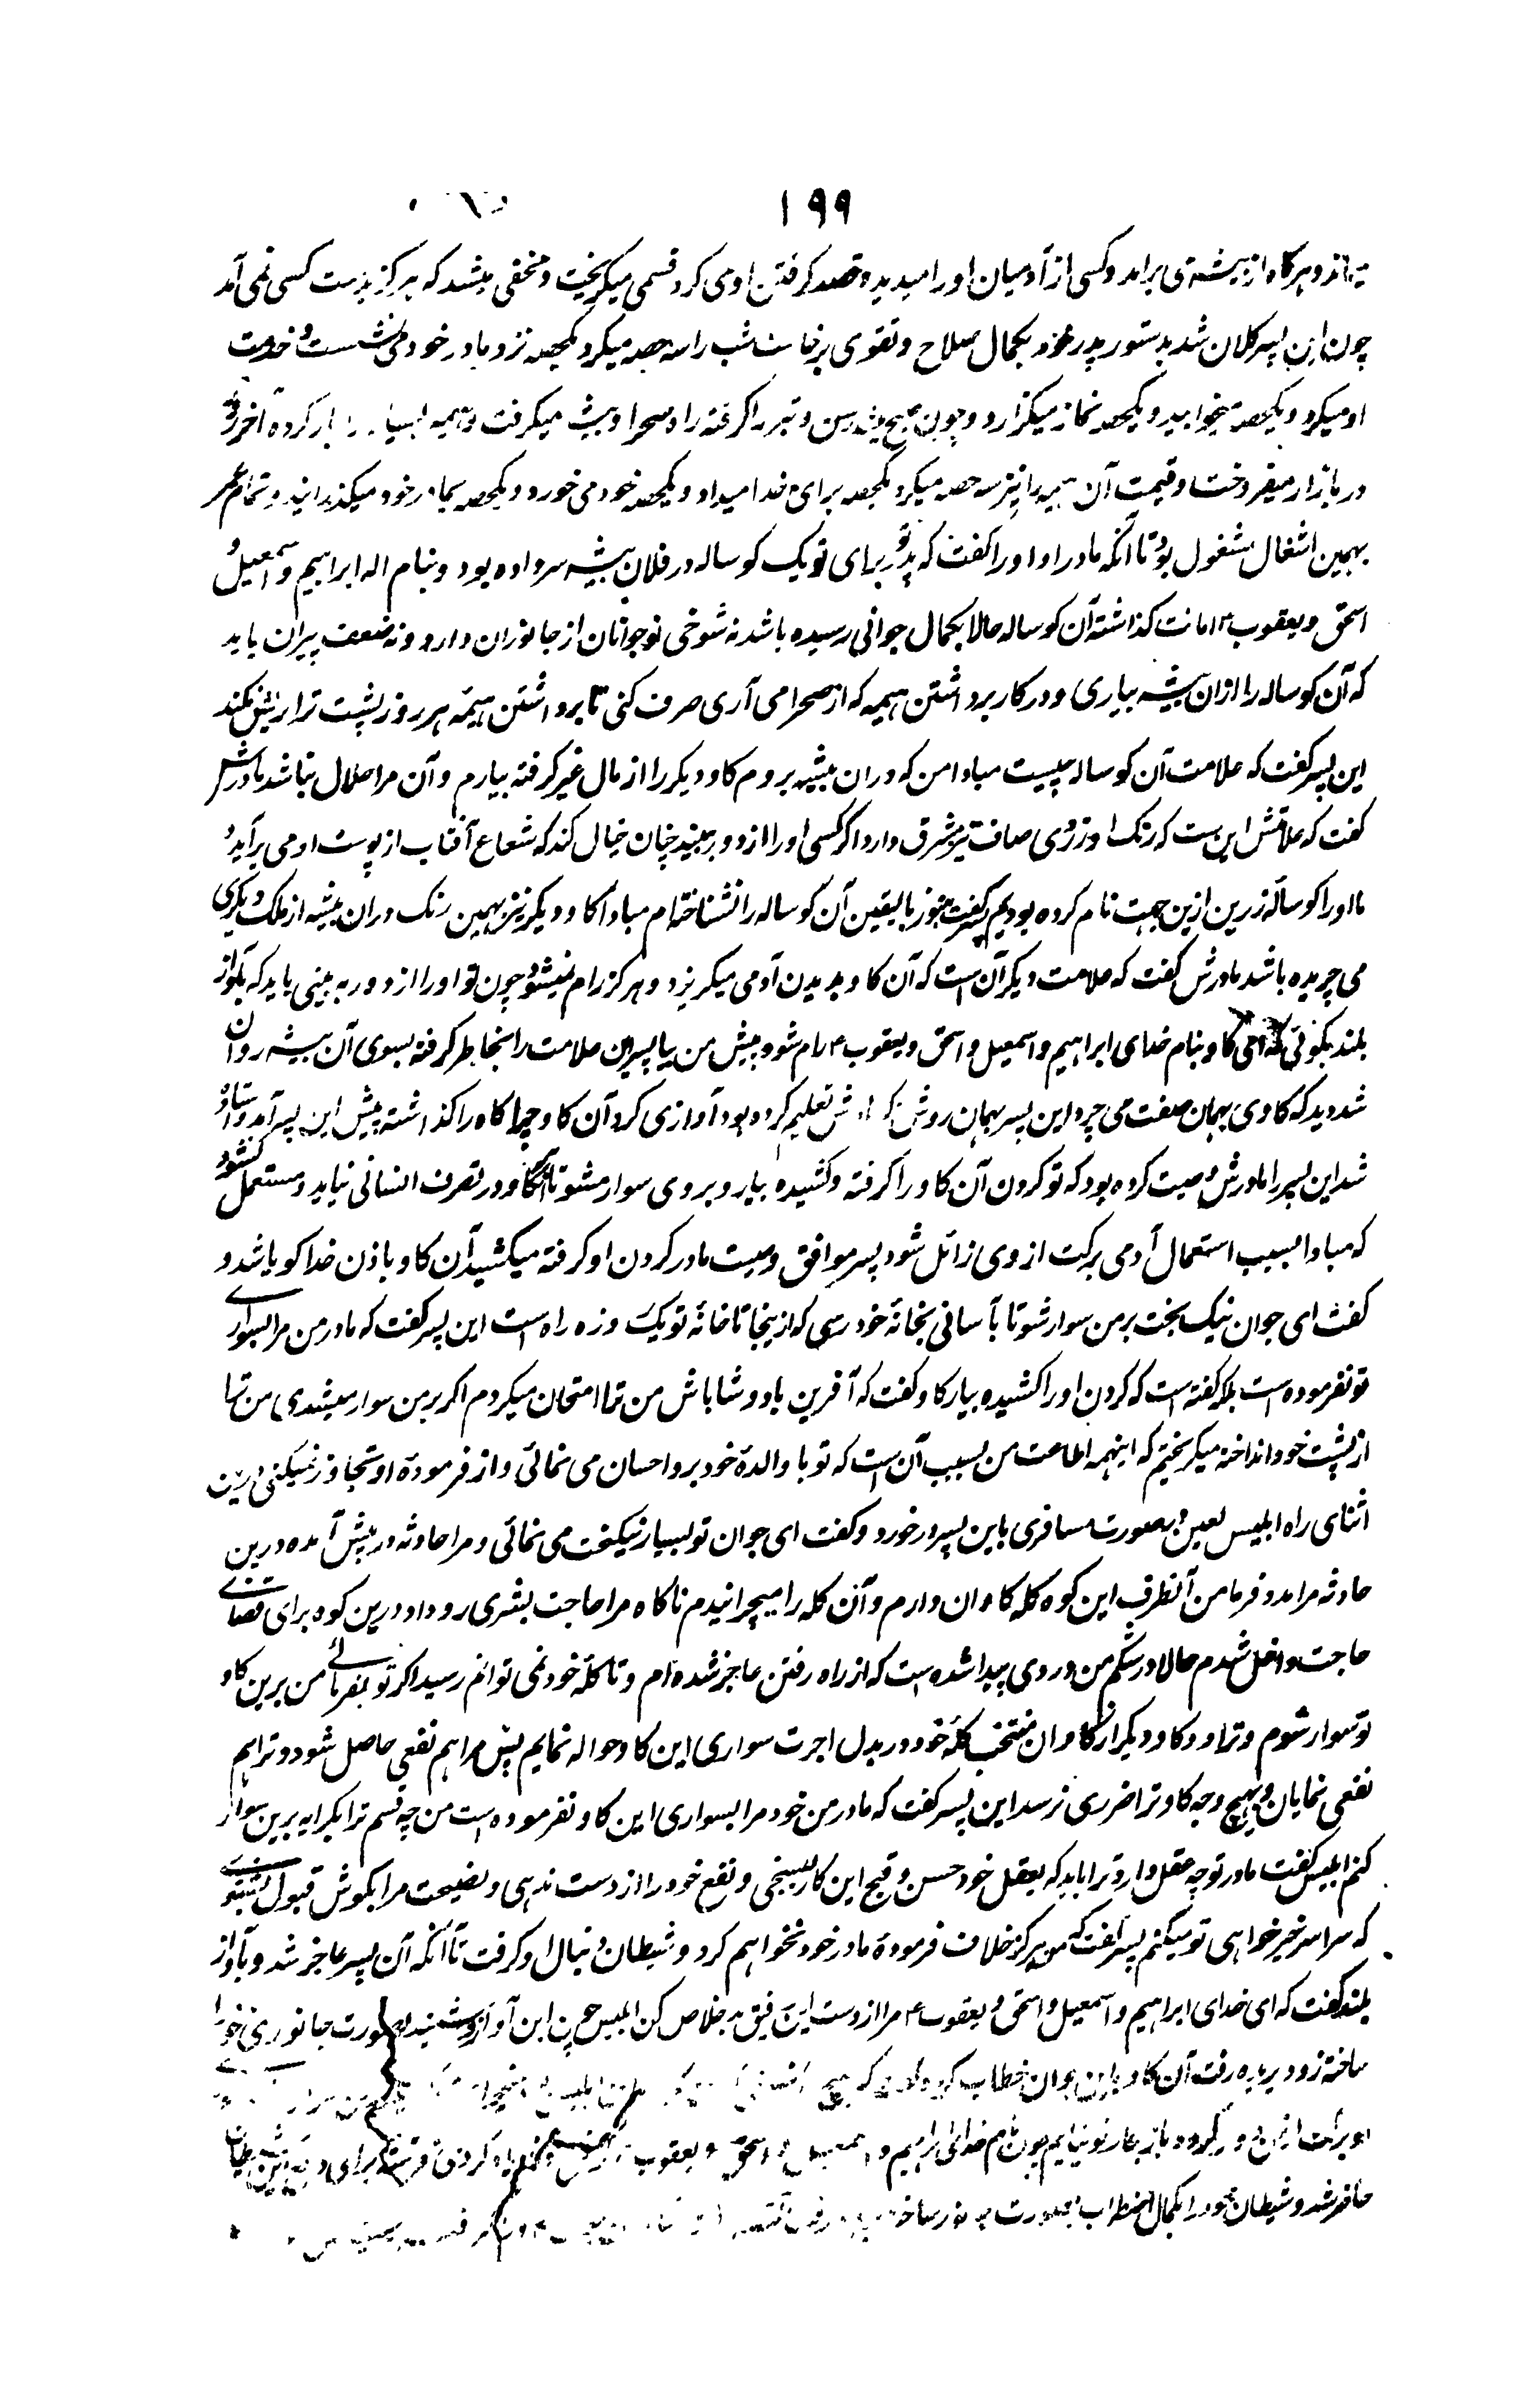 ۱۹۹
و هرگاه از بیشه می برآمد و کسی از آدمیان او را میدید و قصد گرفتن او می کرد قسمی میگریخت و مخفی میشد که هرگز بدست کسی نمی آمد
چون این پسر کلان شد بدستور پدر خود بکمال صلاح و تقوی برخاست شب را سه حصه میکرد یکحصه نزد مادر خود می نشست و خدمت
او میکرد و یکحصه میخوابید و یکحصه نماز میگزارد و چون صبح میشد رسن و تبر را گرفته راه صحرا و بیشه میگرفت و هیمه بسیار را بار کرده آخر روز
در بازار میفروخت و قیمت آن هیمه را نیز سه حصه میکرد یکحصه برای خدا میداد و یکحصه خود می خورد و یکحصه بمادر خود میگذرانید و تمام عمر
بهمین اشغال مشغول بود تا آنکه مادر او او را گفت که پدر تو برای تو یک گوساله در فلان بیشه سر داده بود و بنام اله ابراهیم و اسمعیل و
اسحق و یعقوب ۴ امانت گذاشته آن گوساله حالا بکمال جوانی رسیده باشد نه شوخی نوجوانان از جانوران دارد و نه ضعف پیران باید
که آن گوساله را ازان بیشه بیاری و در کار برداشتن هیمه که از صحرا می آری صرف کنی تا برداشتن هیمه هر روز پشت ترا ریش نکند
این پسر گفت که علامت آن گوساله چیست مبادا من که دران بیشه بروم گاو دیگر را از مال غیر گرفته بیارم و آن مرا حلال نباشد مادرش
گفت که علامتش این ست که رنگ او زردی صاف تیز مشرق دارد اگر کسی او را از دور ببیند چنان خیال کند که شعاع آفتاب از پوست او می برآید و
ما او را گوساله زرین ازین جهت نام کرده بودیم پسر گفت هنوز بالیقین آن گوساله را نشناخته ام مبادا گاو دیگر نیز بهمین رنگ دران بیشه از ملک دیگری
می چریده باشد مادرش گفت که علامت دیگر آن است که آن گاو بدیدن آدمی میگریزد و هرگز رام نمیشود چون تو او را از دور به بینی باید که بآواز
بلند بگوئی که ای گاو بنام خدای ابراهیم و اسمعیل و اسحق و یعقوب ۴ رام شو و پیش من بیا پسر این علامت را بخاطر گرفته بسوی آن بیشه روان
شد دید که گاوی بهمان صفت می چرد این پسر بهمان روش که مادرش تعلیم کرده بود آوازی کرد آن گاو چراگاه را گذاشته پیش این پسر آمد و استاده
شد این پسر را مادرش وصیت کرده بود که تو گردن آن گاو را گرفته و کشیده بیار و بر وی سوار مشو تا آن گاو در تصرف انسانی نیاید و مستعمل نشود
که مبادا بسبب استعمال آدمی برکت از وی زائل شود پسر موافق وصیت مادر گردن او گرفته میکشید آن گاو باذن خدا گویا شد و
گفت ای جوان نیک بخت بر من سوار شو تا بآسانی بخانۀ خود رسی که ازینجا تا خانۀ تو یک روزه راه است این پسر گفت که مادر من مرا بسواری
تو نفرموده است بلکه گفته است که گردن او را کشیده بیار گاو گفت که آفرین باد و شاباش من ترا امتحان میکردم اگر بر من سوار میشدی من ترا
از پشت خود انداخته میگریختم که اینهمه اطاعت من بسبب آن است که تو با والدۀ خود بر و احسان می نمائی و از فرمودۀ او تجاوز نمیکنی درین
اثنای راه ابلیس لعین بصورت مسافری باین پسر درخورد و گفت ای جوان تو بسیار نیکبخت می نمائی و مرا حادثه در پیش آمده درین
حادثه مرا مدد فرما من آنطرف این کوه گله گاوان دارم و آن گله را میچرانیدم ناگاه مرا حاجت بشری رو داد و درین کوه برای قضای
حاجت داخل شدم حالا در شکم من دردی پیدا شده است که از راه رفتن عاجز شده ام و تا گلۀ خود نمی توانم رسید اگر تو بفرمائی من برین گاو
تو سوار شوم و ترا دو گاو دیگر از گاوان منتخب گلۀ خود در بدل اجرت سواری این گاو حواله نمایم پس مرا هم نفعی حاصل شود و ترا هم
نفعی نمایان و بهیچ وجه گاو ترا ضرری نرسد این پسر گفت که مادر من خود مرا بسواری این گاو نفرموده است من چه قسم ترا بکرایه برین سوار
کنم ابلیس گفت مادر تو چه عقل دارد ترا باید که بعقل خود حسن و قبح این کار بسنجی و نفع خود را از دست ندهی و نصیحت مرا بگوش قبول بشنوی
که سراسر خیر خواهی تو میکنم پسر گفت که من هرگز خلاف فرمودۀ مادر خود نخواهم کرد و شیطان دنبال او گرفت تا آنکه آن پسر عاجز شد و بآواز
بلند گفت که ای خدای ابراهیم و اسمعیل و اسحق و یعقوب ۴ مرا از دست این رفیق بد خلاص کن ابلیس چون این آواز شنید بصورت جانوری خود را
ساخته زود پریده رفت آن گاو باین جوان خطاب کرد و گفت که
خدای ابراهیم و اسمعیل و اسحق و یعقوب
حاضر شد و شیطان خود را بکمال اضطراب بصورت جانور ساخته